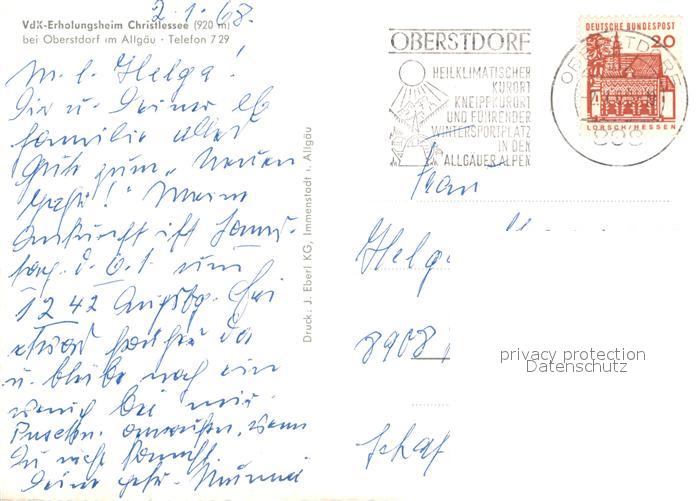 2.1.68.
VdK-Erholungsheim Christlessee (920 m)
bei Oberstdorf im Allgäu · Telefon 7 29
M. l. Helga!
Dir u. Deiner lb
Familie alles
Gute zum „Neuen
Jahr!" Meine
Ankunft ist Sams-
tag d. 6.1. um
12 42 Augsbg.
u. bleibe noch ein
wenig bei mir.
anrufen, wenn
Du nicht kommst.
Deine
Druck: J. Eberl KG, Immenstadt i. Allgäu
OBERSTDORF
HEILKLIMATISCHER
KURORT
KNEIPPKURORT
UND FÜHRENDER
WINTERSPORTPLATZ
IN DEN
ALLGÄUER ALPEN
DEUTSCHE BUNDESPOST
20
LORSCH/HESSEN
OBERSTDORF
Frau
Helga
8908
privacy protection
Datenschutz